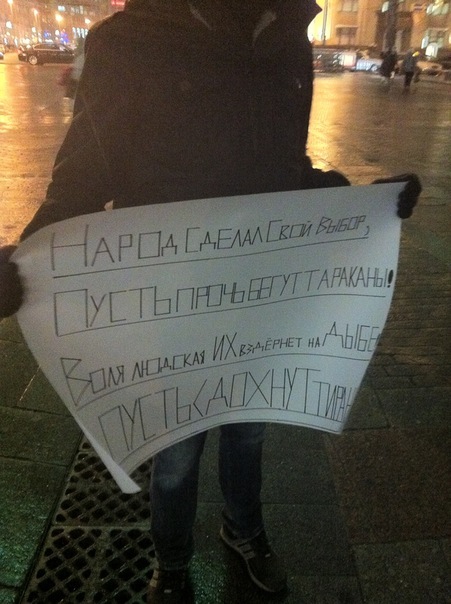 Народ Сделал Свой Выбор,
Пусть прочь бегут тараканы!
Воля людская их вздёрнет на дыбе
Пусть сдохнут